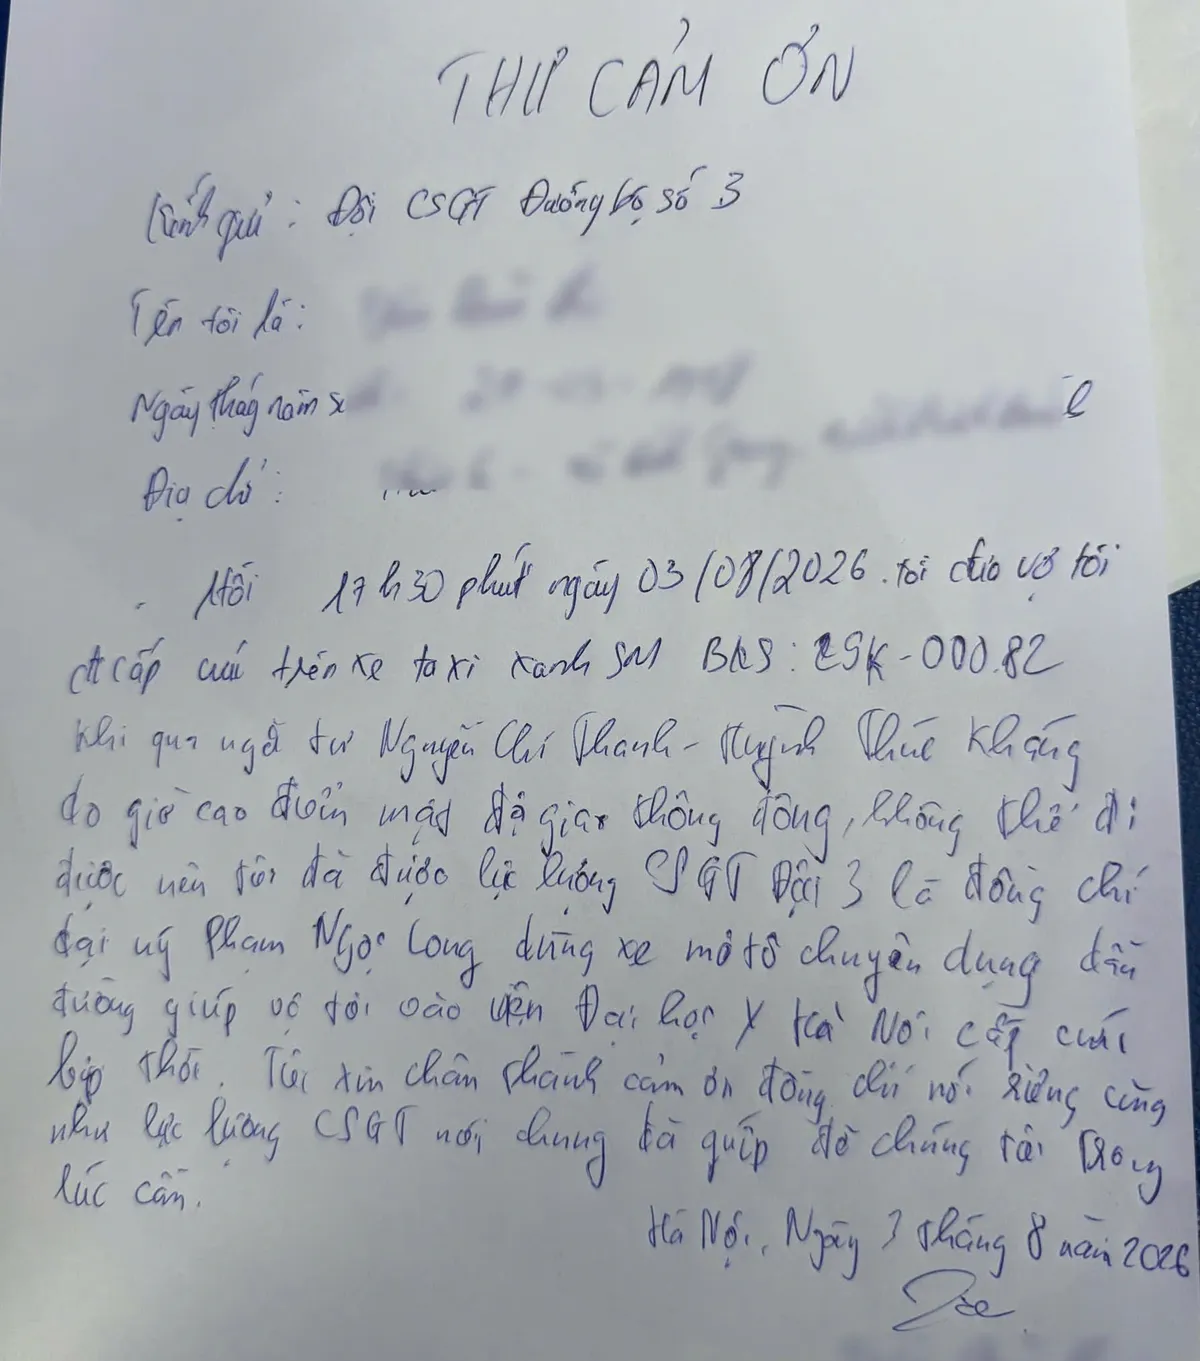 THƯ CẢM ƠN
Kính gửi: Đội CSGT Đường bộ số 3
Tên tôi là:
Ngày tháng năm
Địa chỉ:
Hồi 17h30 phút ngày 03/08/2026. tôi đưa vợ tôi
đi cấp cứu trên xe taxi xanh SM BKS: 29K-000.82
Khi qua ngã tư Nguyễn Chí Thanh - Huỳnh Thúc Kháng
do giờ cao điểm mật độ giao thông đông, không thể đi
được nên tôi đã được lực lượng CSGT Đội 3 là đồng chí
đại úy Phạm Ngọc Long dùng xe mô tô chuyên dụng dẫn
đường giúp vợ tôi vào viện Đại học Y Hà Nội cấp cứu
kịp thời. Tôi xin chân thành cảm ơn đồng chí nói riêng cũng
như lực lượng CSGT nói chung đã giúp đỡ chúng tôi trong
lúc cần.
Hà Nội, Ngày 3 tháng 8 năm 2026